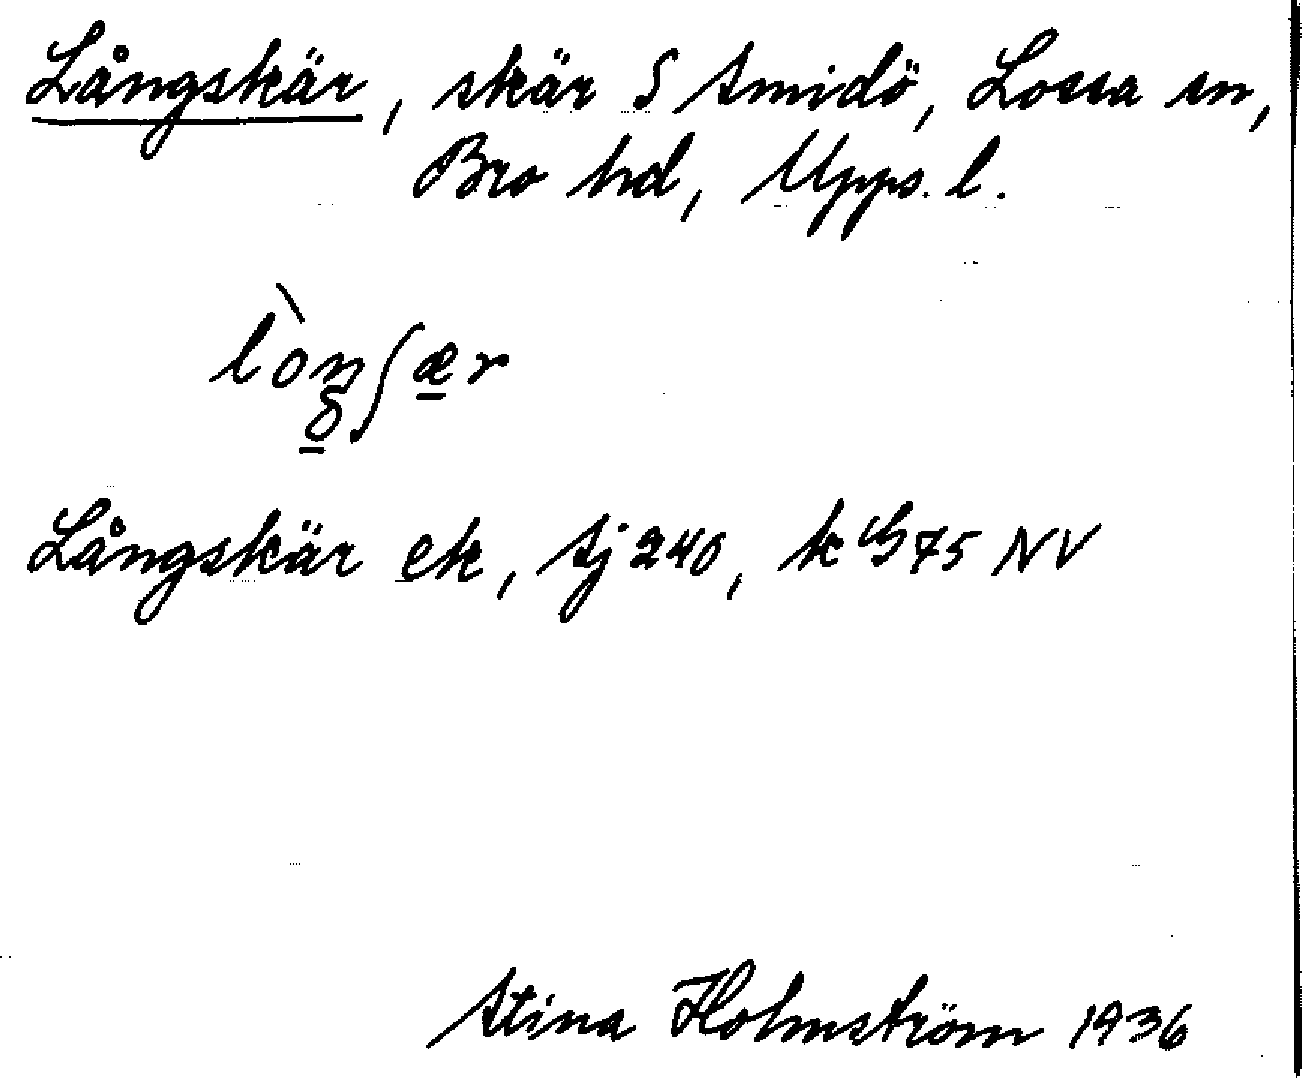 Långskär, skär S Smidö, Lossa sn,
Bro hd, Upps. l.
lòŋʃær
Långskär ek, sj 240, k G75 NV
Stina Holmström 1936